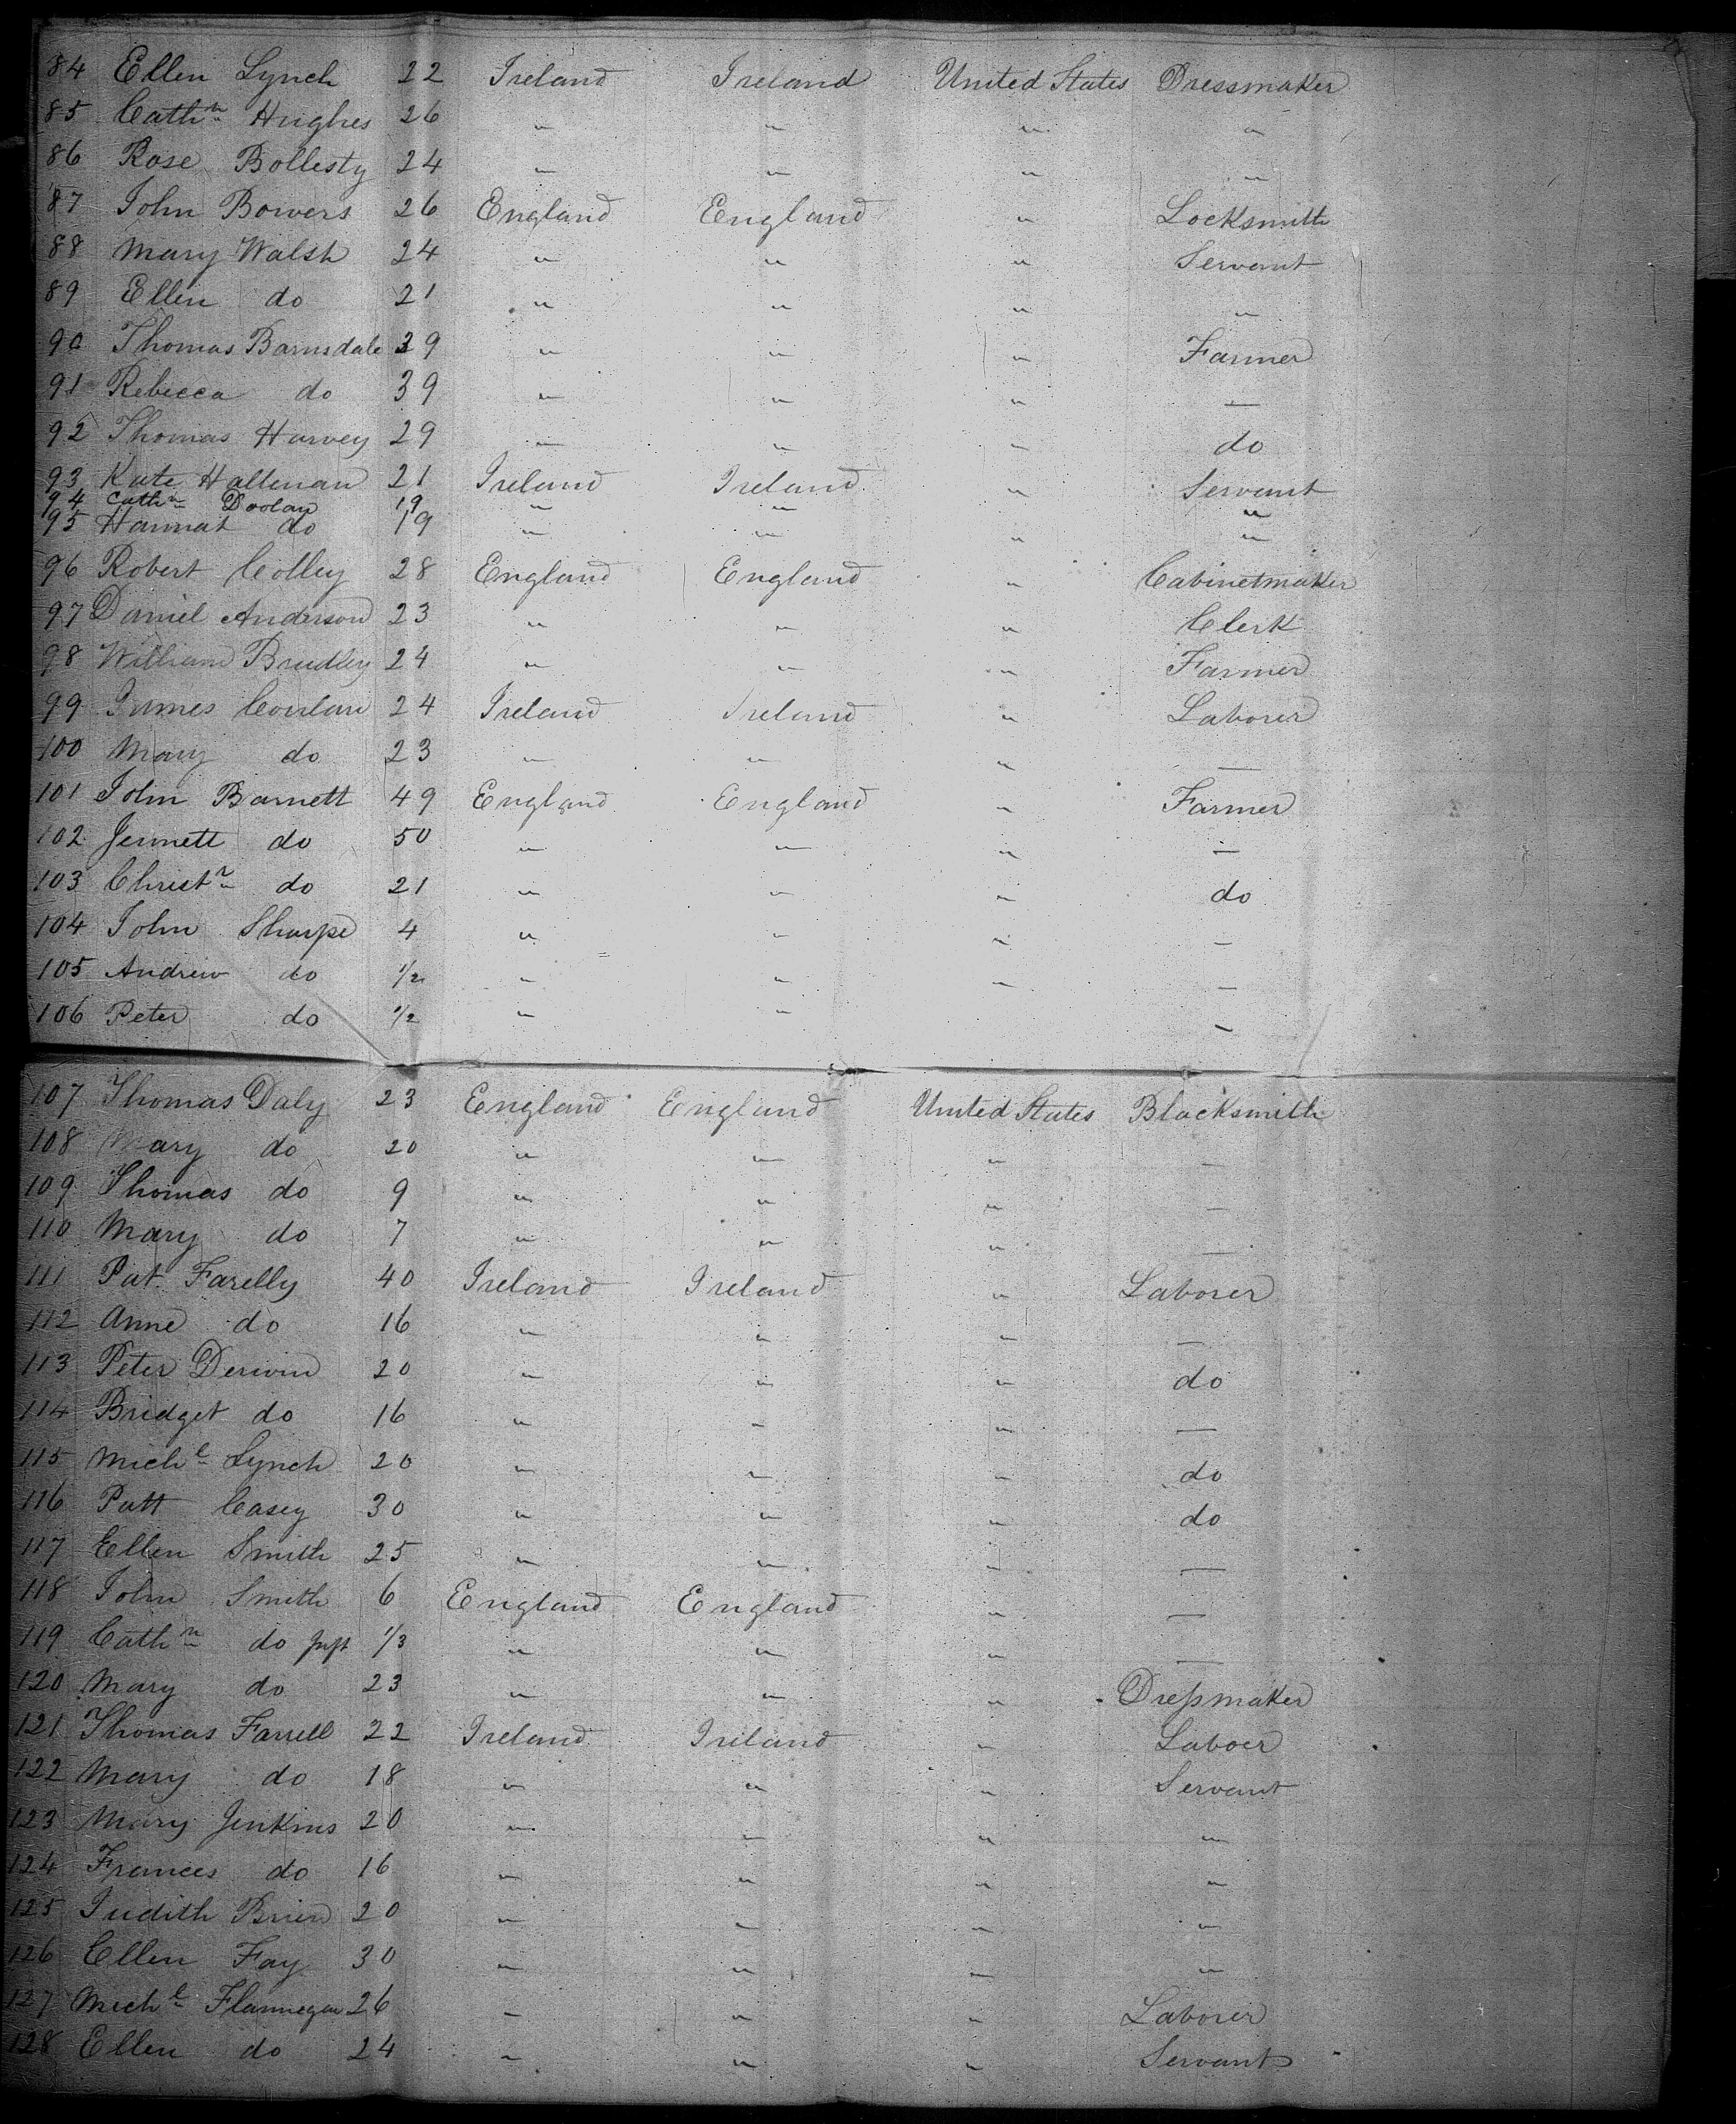 84 Ellen Lynch 22 Ireland Ireland United States Dressmaker
85 Cathn Hughes 26 " " " "
86 Rose Bollesty 24 " " " "
87 John Bowers 26 England England " Locksmith
88 Mary Walsh 24 " " " Servant
89 Ellen do 21 " " " "
90 Thomas Barnsdale 39 " " " Farmer
91 Rebecca do 39 " " " —
92 Thomas Harvey 29 " " " do
93 Kate Hallenan 21 Ireland Ireland " Servant
94 Cathn Doolan 19 " " "
95 Hannah do 19 " " " "
96 Robert Colley 28 England England " Cabinetmaker
97 Daniel Anderson 23 " " " Clerk
98 William Bradley 24 " " " Farmer
99 James Conlan 24 Ireland Ireland " Laborer
100 Mary do 23 " " " —
101 John Barnett 49 England England " Farmer
102 Jennett do 50 " " " —
103 Christr do 21 " " " do
104 John Sharpe 4 " " " —
105 Andrew do 1/2 " " " —
106 Peter do 1/2 " " —
107 Thomas Daly 23 England England United States Blacksmith
108 Mary do 20 " " " —
109 Thomas do 9 " " " —
110 Mary do 7 " " " —
111 Pat. Farelly 40 Ireland Ireland " Laborer
112 Anne do 16 " " " —
113 Peter Derwin 20 " " " do
114 Bridget do 16 " " " —
115 Michl Lynch 20 " " " do
116 Patt Casey 30 " " " do
117 Ellen Smith 25 " " " —
118 John Smith 6 England England " —
119 Cathn do Inft 1/3 " " " —
120 Mary do 23 " " " Dressmaker
121 Thomas Farrell 22 Ireland Ireland " Laboer
122 Mary do 18 " " " Servant
123 Mary Jenkins 20 " " " "
124 Frances do 16 " " " "
125 Judith Brien 20 " " " "
126 Ellen Fay 30 " " " "
127 Michl Flannegan 26 " " " Laborer
128 Ellen do 24 " " " Servant